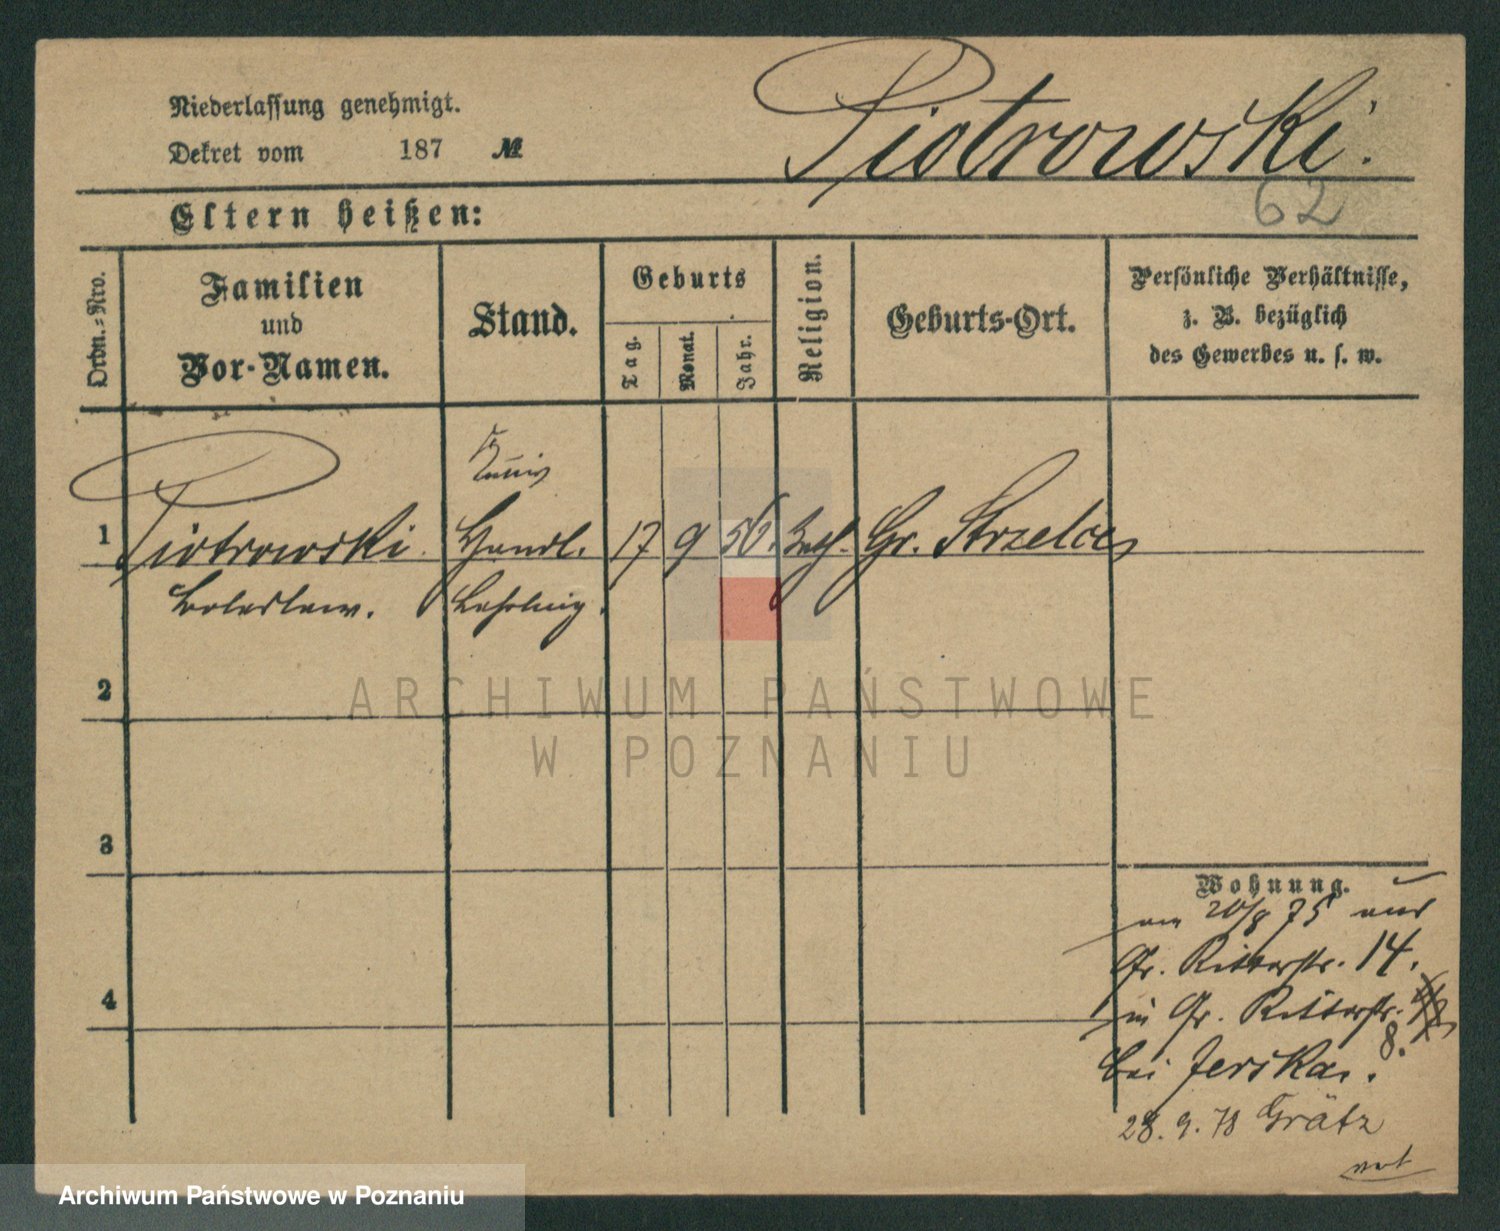 Niederlassung genehmigt.
Dekret vom 187 №
Piotrowski.
62
Eltern heißen:
Ordn.=Nro.
Familien
und
Vor-Namen.
Stand.
Geburts
Tag.
Monat.
Jahr.
Religion.
Geburts-Ort.
Persönliche Verhältnisse,
z. B. bezüglich
des Gewerbes u. s. w.
1 Piotrowski. Handl. 17 9 56. kath. Gr. Strzelce
Boleslaw. Lehrling.
2
3
4
Wohnung.
am 20/8 75 aus
Gr. Ritterstr. 14.
in Gr. Ritterstr.
8.
bei Jerska.
28. 9. 78 Grätz
ARCHIWUM PAŃSTWOWE
W POZNANIU
Archiwum Państwowe w Poznaniu